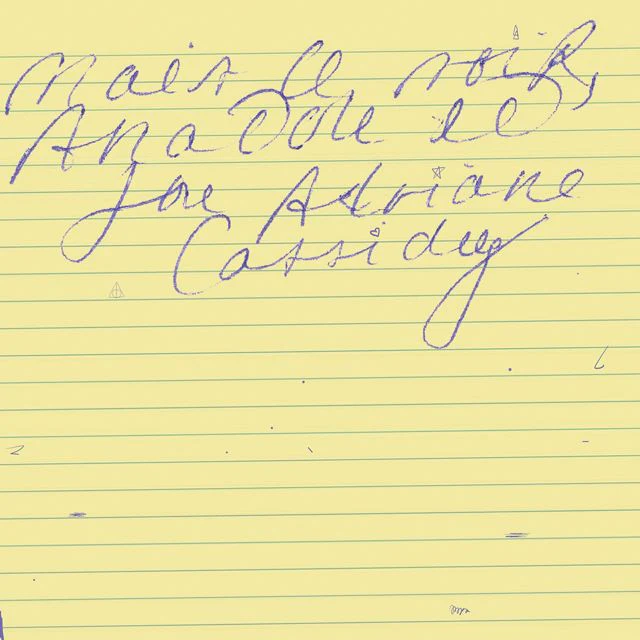 Mais le soir,
Anadole et
Joe Adriane
Cassidy